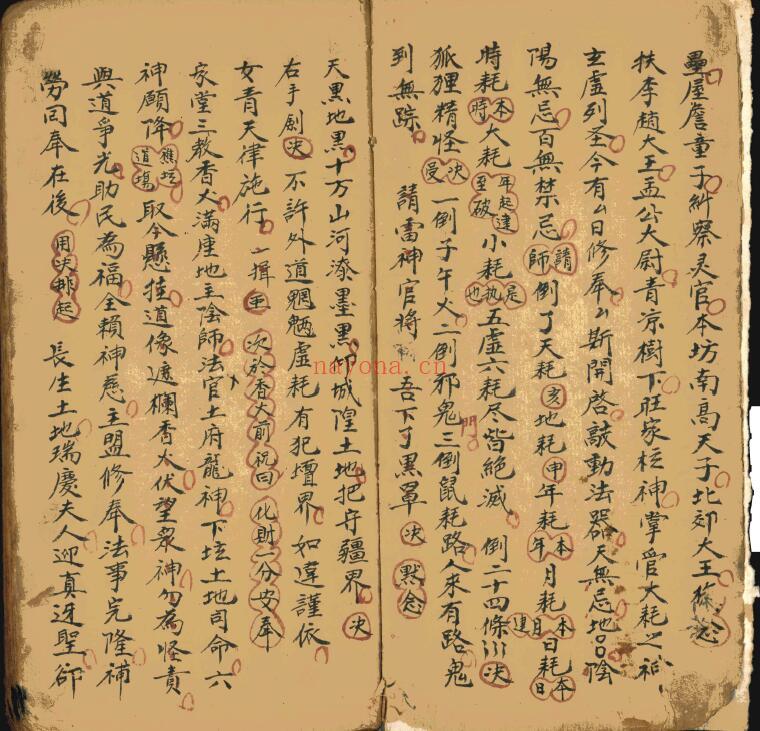 壘屋詹童子糾察灵官本坊南高天子北郊大王
扶李趙大王孟公大尉青凉樹下旺家枉神掌管大耗之神
玄虛列圣今有厶日修奉厶斯開啓鼓動法器天無忌地吕陰
陽無忌百無禁忌請師倒了天耗亥地耗申年耗本年月耗本月建日耗本日
時耗本時大耗年起建至破小耗是执也五虛六耗尽皆絶滅倒二十四條决
狐狸精怪决受一倒子午火二倒邪鬼三倒鼠耗路人來有路鬼門
到無踪 請雷神官將吾下了黑罩决 默念
天黑地黑十方山河潑墨黑却城隍土地把守疆界决
右手劍决不許外道魍魎虛耗有犯壇界如違謹依
女青天律施行一揖 次於香火前祝曰 化財一分安奉
家堂三教香火滿座地主陰師法官土府龍神下坛土地司命六
神願降醮坛道場取今懸挂道像遮欄香火伏望衆神勿為怪責
與道爭光助民為福全賴神慈主盟修奉法事完隆補
勞同奉在後 用决排起 長生土地瑞慶夫人迎真迓聖卻
nayona.cn